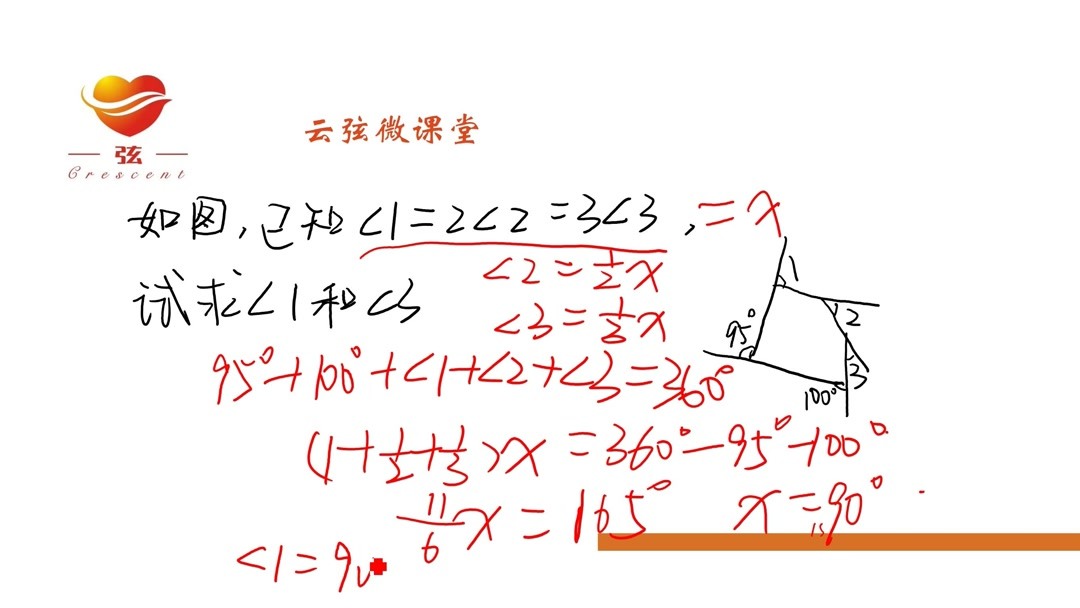 弦
Crescent
云弦微课堂
如图,已知<1=2<2=3<3,=x
试求<1和<3
<2=½x
<3=⅓x
1
2
95°
3
100°
95°+100°+<1+<2+<3=360°
(1+½+⅓)x=360°-95°-100°.
11/6 x=165° x=90°
<1=90